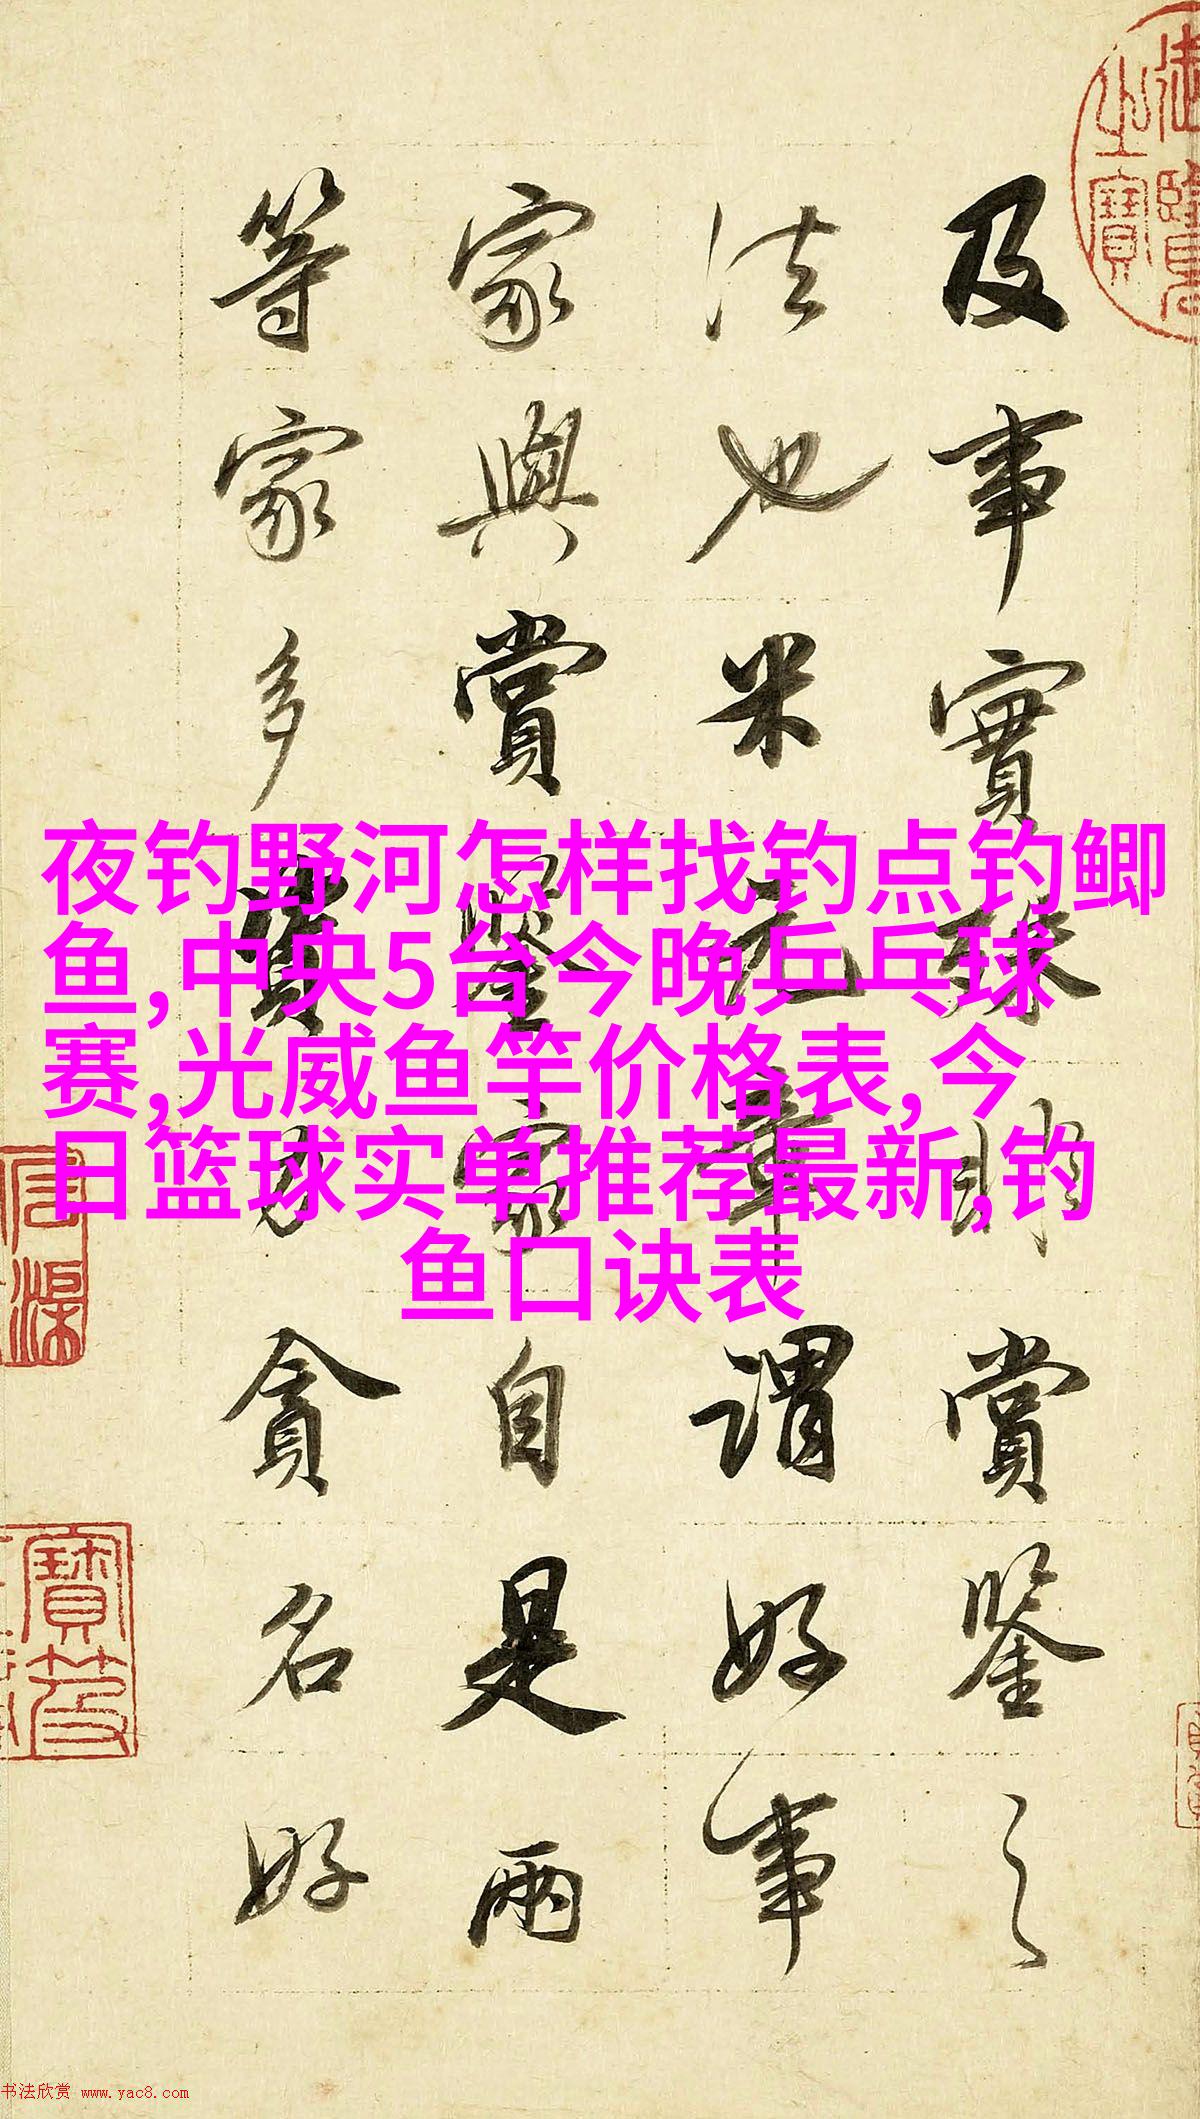 及事實殊則賞鑒之
法也米元章謂好事
家與賞鑒家自是兩
等家多資力貪名好
夜钓野河怎样找钓点钓鲫
鱼,中央5台今晚乒乓球
赛,光威鱼竿价格表,今
日篮球实单推荐最新,钓
鱼口诀表
書法欣赏 www.yac8.com